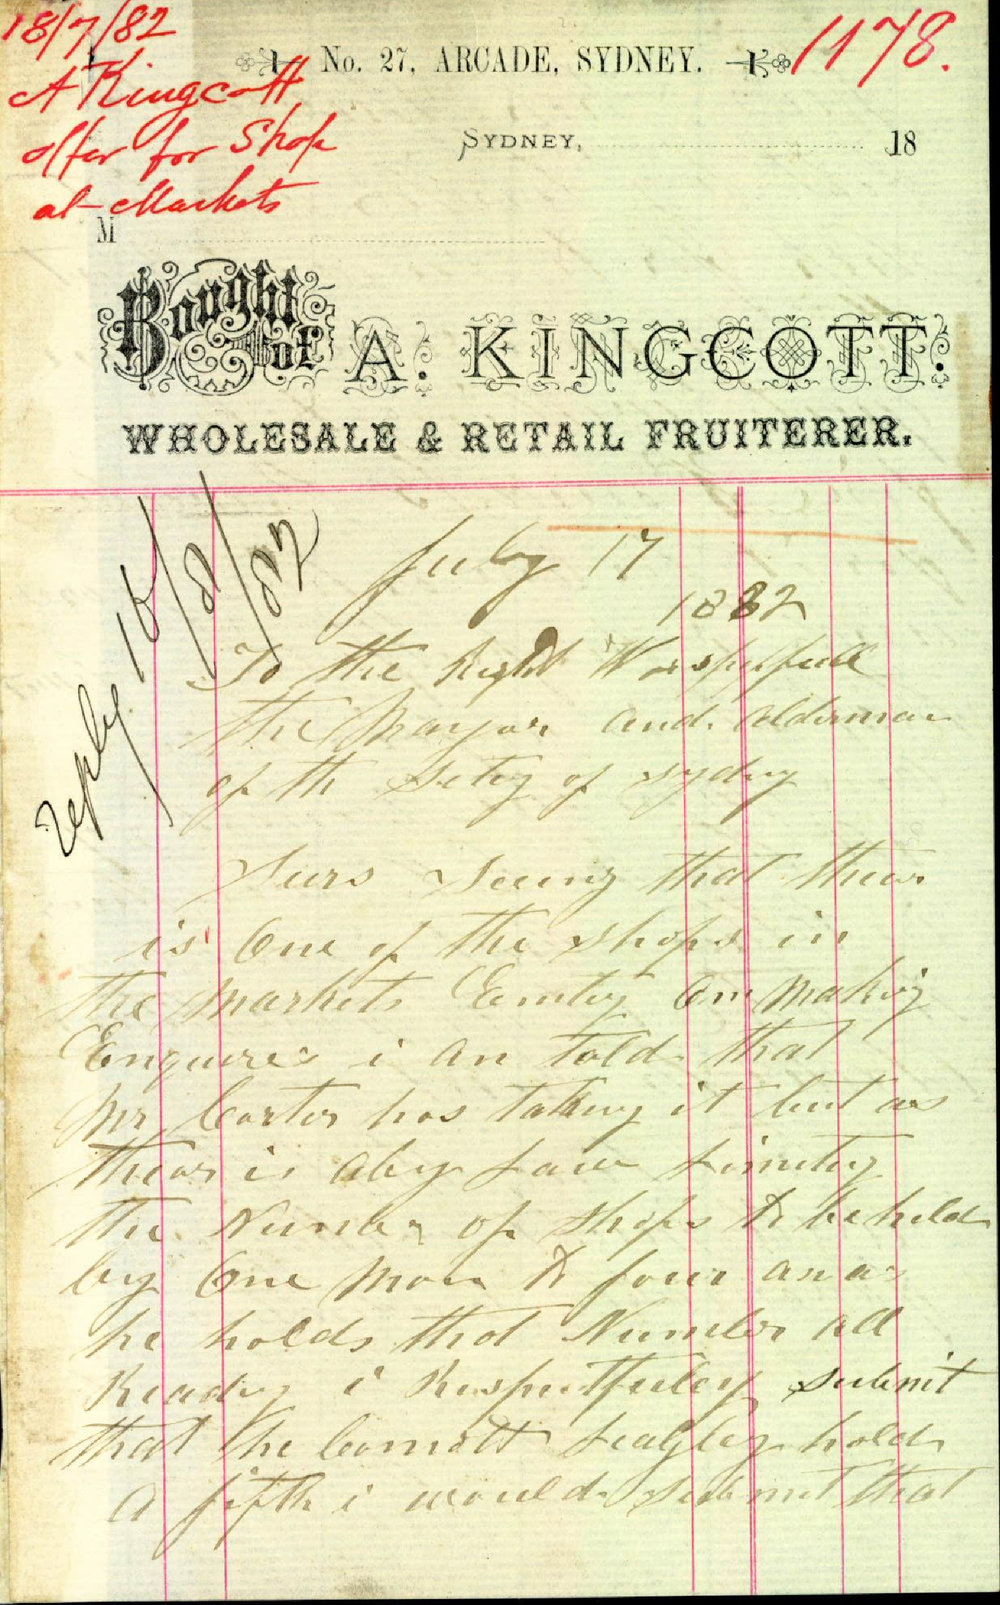 18/7/82
A Kingcott
offer for Shop
at Markets
1178.
No. 27, ARCADE, SYDNEY.
SYDNEY, 18
M
Bought of A. KINGCOTT.
WHOLESALE & RETAIL FRUITERER.
reply 16/8/82
July 17
1882
To the Right Worspefull
the Mayor and Alderman
of th Sity of Sydny
Surs Seeing that thear
is One of the shops in
the Markets Emty On Making
Enqueres i an told that
Mr Carter has taking it but as
thear is aby Law Limiting
the Number of Shops to be held
by One Man to four an as
he holds that Number all
Ready i Respectfuley submit
that he Cannott Leagley hold
A fifth i would submit that